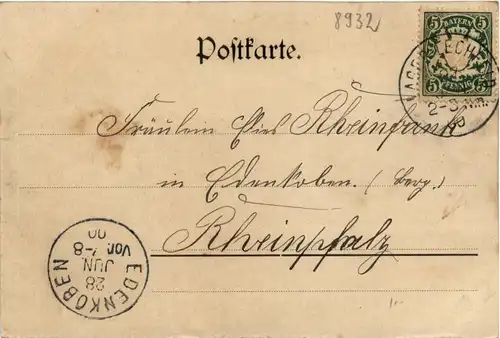 8932
Postkarte.
5 BAYERN 5
5 PFENNIG 5
2-3 Nm.
Fräulein Elis Rheinfrank
in Edenkoben. (Berg.)
Rheinpfalz
EDENKOBEN
28
JUN.
Vor. 7-8
00